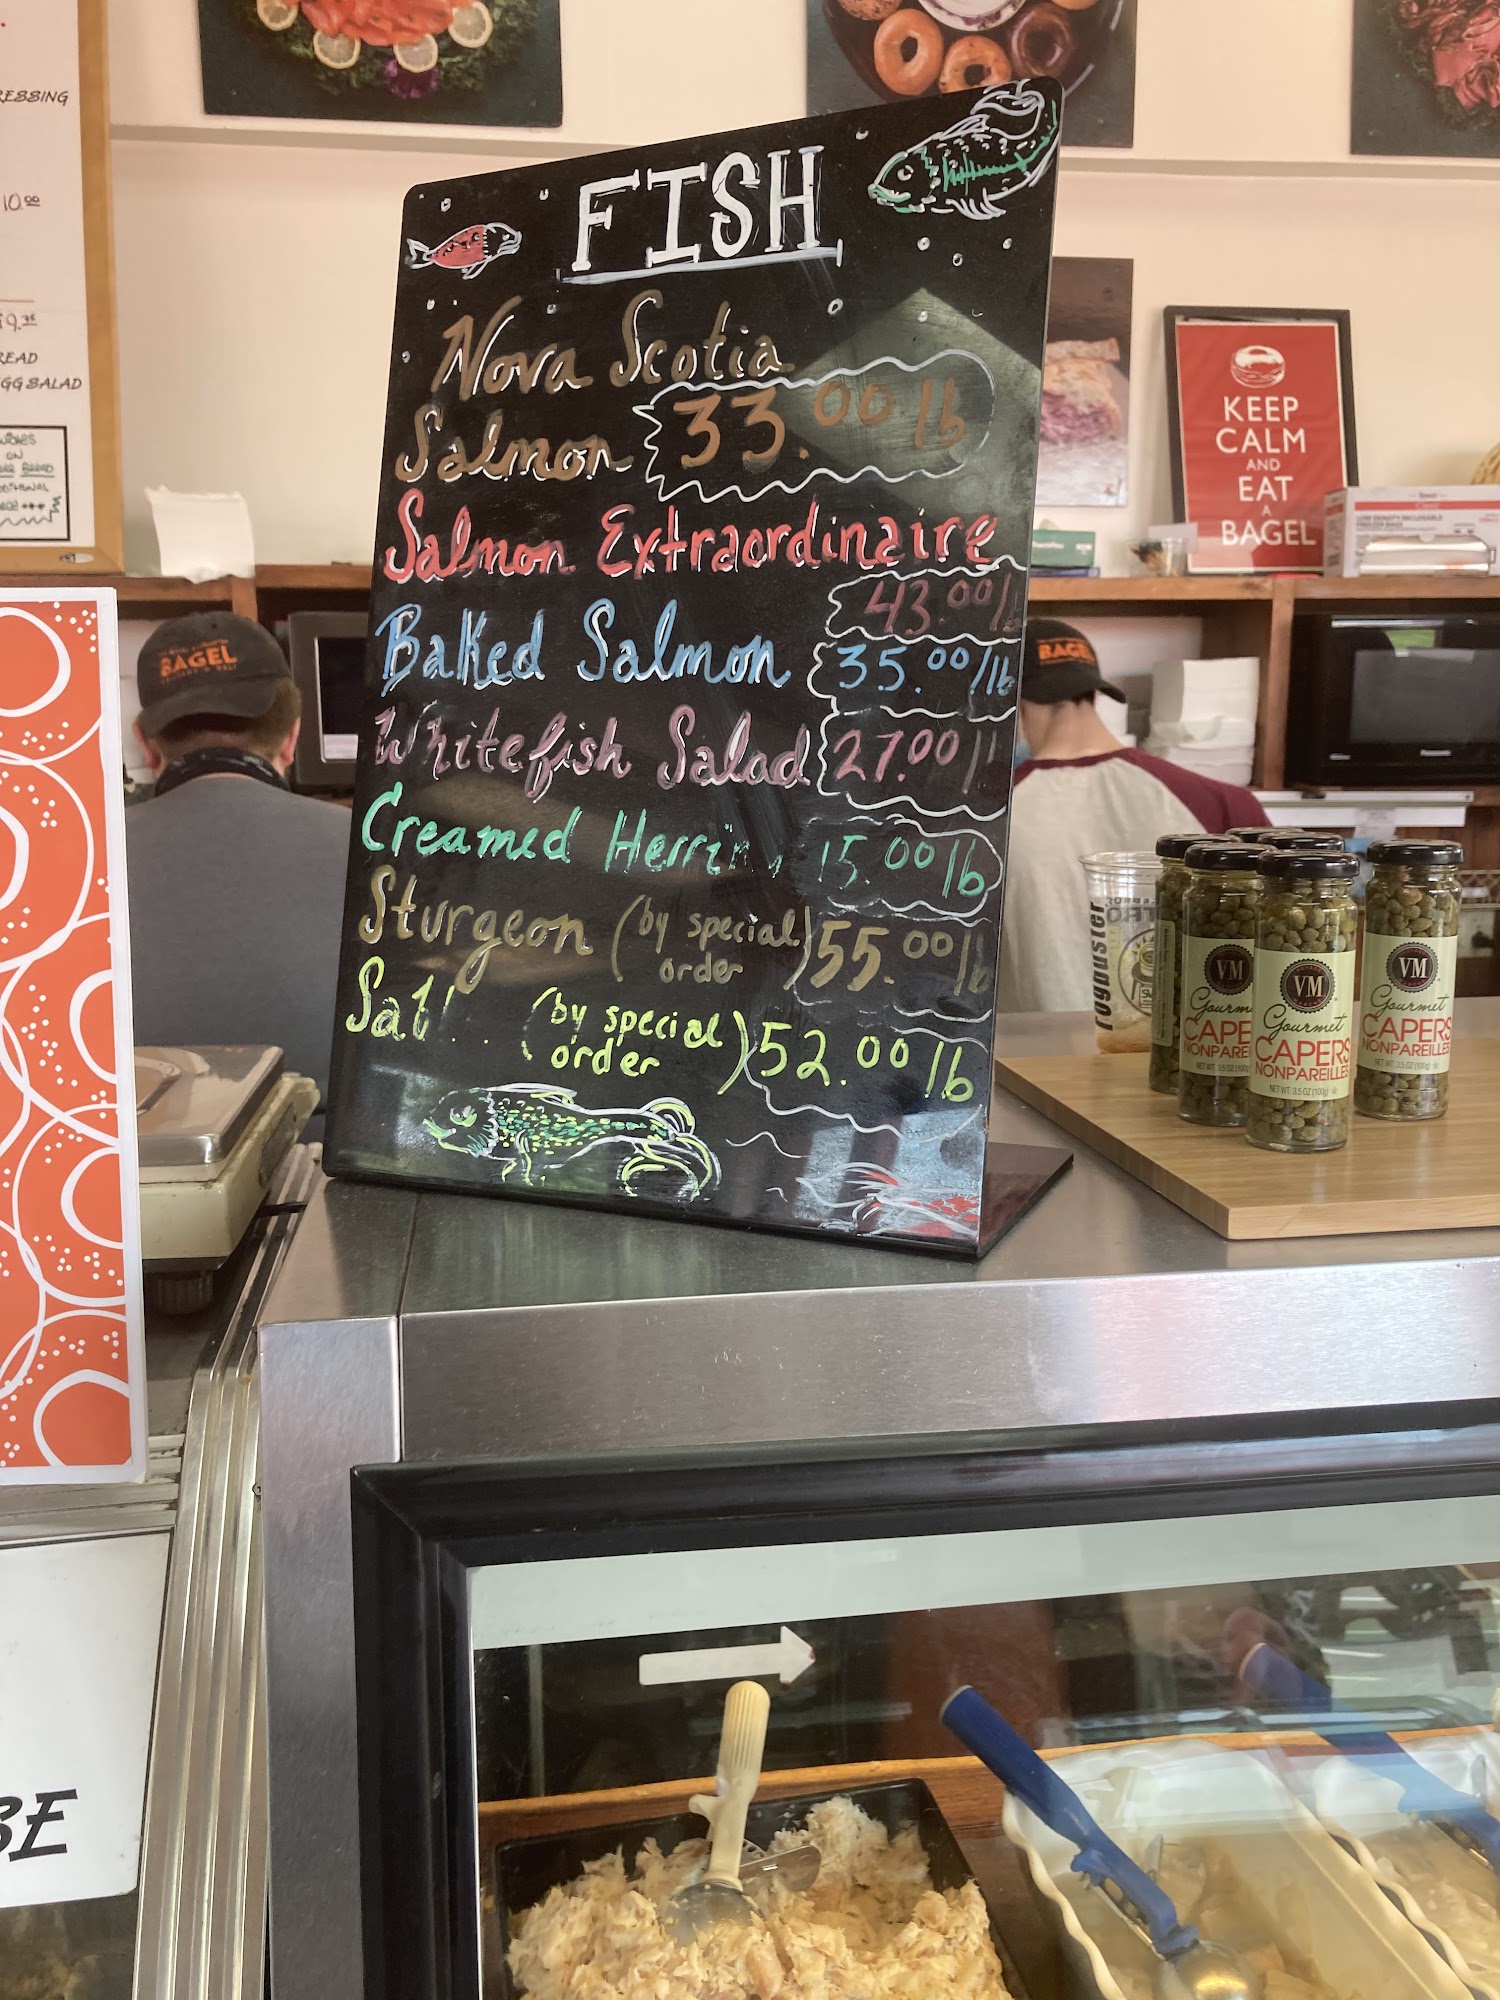 FISH
Nova Scotia
Salmon 33.00 lb
Salmon Extraordinaire
43.00/lb
Baked Salmon 35.00/lb
Whitefish Salad 27.00
Creamed Herring 15.00 lb
Sturgeon (by special order) 55.00 lb
(by special order) 52.00 lb
10.00
EGG SALAD
ON
BAGEL
BAGEL
KEEP
CALM
AND
EAT
A
BAGEL
VM
Gourmet
CAPERS
NONPAREILLES
NET WT. 3.5 OZ (100g)
VM
Gourmet
CAPERS
NONPAREILLES
NET WT. 3.5 OZ (100g)
VM
Gourmet
CAPERS
NONPAREILLES
BE